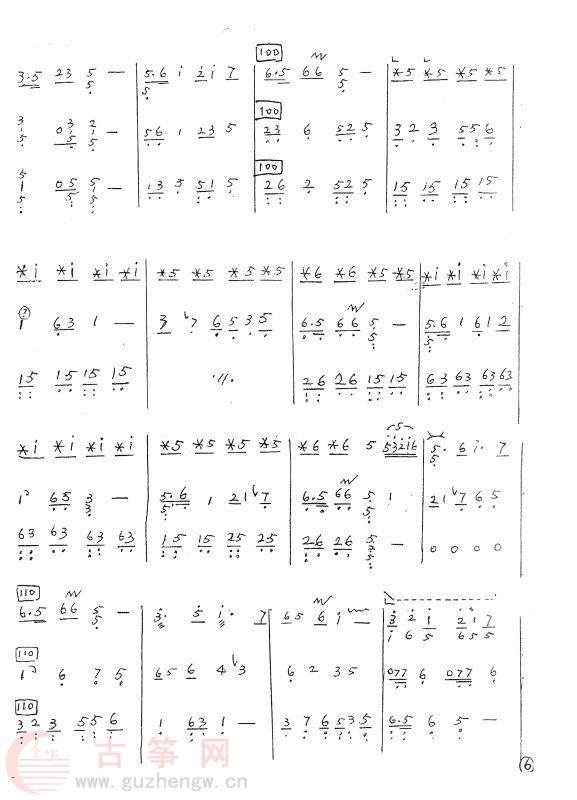 100
3.5 23 5 — | 5.6 i 2i 7 | 6.5 66 5 — | *5 *5 *5 *5
100
3 03 2 — | 56 1 23 5 | 23 6 52 5 | 32 3 55 6
100
5 05 5 — | 13 5 51 5 | 26 2 52 5 | 15 15 15 15
*i *i *i *i | *5 *5 *5 *5 | *6 *6 *5 *5 | *i *i *i *i
1 63 1 — | 3 7 6535 | 6.5 66 5 — | 5.6 1 61 2
15 15 15 15 | ·//. | 26 26 15 15 | 63 63 63 63
*i *i *i *i | *5 *5 *5 *5 | *6 *6 5 53216 | 5. 6 i. 7
1 65 3 — | 5.6 1 21 7 | 6.5 66 5 1 | 21 7 6 5
63 63 63 63 | 15 15 25 25 | 26 26 5 — | 0 0 0 0
110
6.5 66 5 — | 3. 5 i. 7 | 65 6 i | 3 2 i 2 i 7
i 6 5 6 5 5
110
1 6 7 5 | 65 6 4 3 | 6 2 35 | 077 6 077 6
110
32 3 55 6 | 1 63 1 — | 3 7 6535 | 6.5 6 5 —
古筝网
www.guzhengw.cn
6